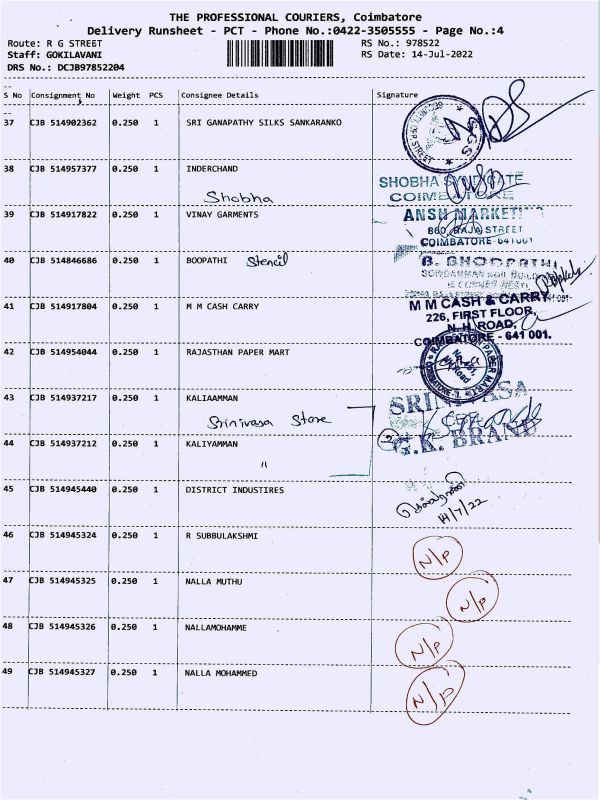 THE PROFESSIONAL COURIERS, Coimbatore
Delivery Runsheet - PCT - Phone No.:0422-3505555 - Page No.:4
Route: R G STREET RS No.: 978522
Staff: GOKILAVANI RS Date: 14-Jul-2022
DRS No.: DCJB97852204
S No Consignment No Weight PCS Consignee Details Signature
37 CJB 514902362 0.250 1 SRI GANAPATHY SILKS SANKARANKO
38 CJB 514957377 0.250 1 INDERCHAND
Shobha
SHOBHA SYNDICATE
COIMBATORE
39 CJB 514917822 0.250 1 VINAY GARMENTS
ANSH MARKETING
860, RAJA STREET
COIMBATORE-641001
40 CJB 514846686 0.250 1 BOOPATHI Stencil
B. BHOOPATHI
41 CJB 514917804 0.250 1 M M CASH CARRY
M M CASH & CARRY
226, FIRST FLOOR,
N. H. ROAD,
COIMBATORE - 641 001.
42 CJB 514954044 0.250 1 RAJASTHAN PAPER MART
43 CJB 514937217 0.250 1 KALIAAMMAN
Srinivasa Store
44 CJB 514937212 0.250 1 KALIYAMMAN
"
2
G.K. BRAND
45 CJB 514945440 0.250 1 DISTRICT INDUSTIRES
14/7/22
46 CJB 514945324 0.250 1 R SUBBULAKSHMI
N/P
47 CJB 514945325 0.250 1 NALLA MUTHU
N/P
48 CJB 514945326 0.250 1 NALLAMOHAMME
N/P
49 CJB 514945327 0.250 1 NALLA MOHAMMED
N/P